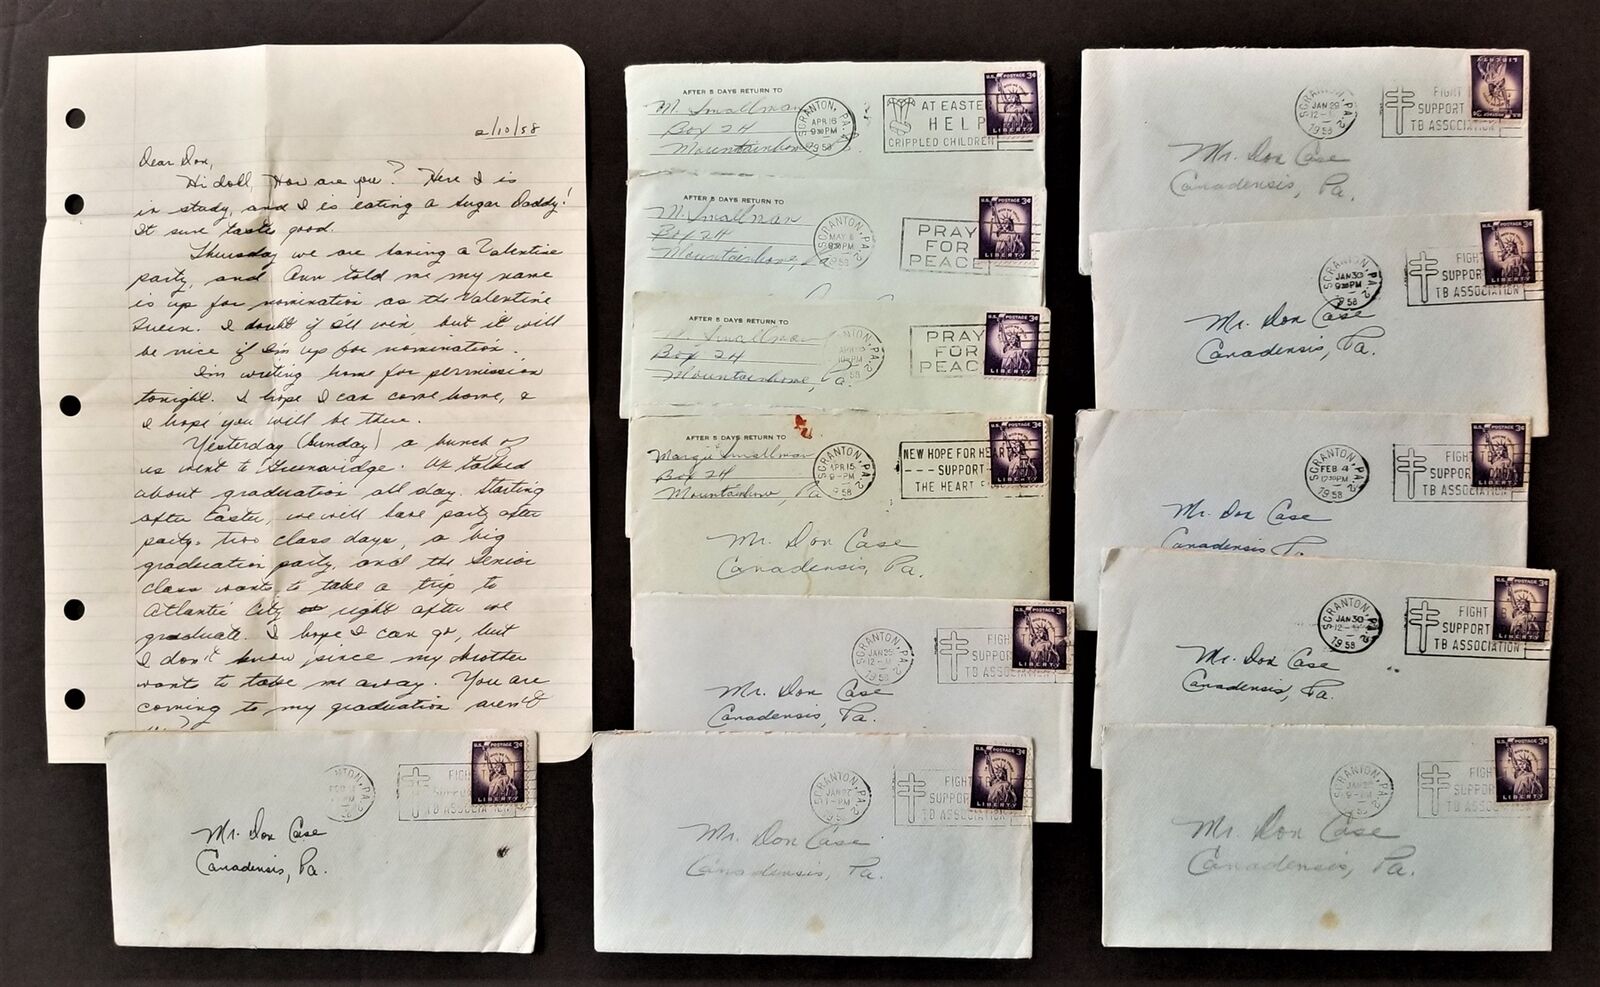 2/10/58
Dear Don,
Hi doll, How are you? Here I is
in study, and I is eating a Sugar Daddy!
It sure taste good.
Thursday we are having a Valentine
party, and Ann told me my name
is up for nomination as the Valentine
Queen. I doubt if I'll win, but it will
be nice if I'm up for nomination.
I'm writing home for permission
tonight. I hope I can come home, &
I hope you will be there.
Yesterday (Sunday) a bunch of
us went to Greenridge. We talked
about graduation all day. Starting
after Easter, we will have party after
party. two class days, a big
graduation party, and the Senior
class wants to take a trip to
Atlantic City right after we
graduate. I hope I can go, but
I don't know since my brother
wants to take me away. You are
coming to my graduation aren't
FIGHT
TB ASSOCIATION
U.S. POSTAGE 3¢
LIBERTY
Mr. Don Case
Canadensis, Pa.
AFTER 5 DAYS RETURN TO
M. Smallman
Box 24
Mountainhome
SCRANTON, PA. 2
APR 16
9 30 PM
1958
AT EASTER
HELP
CRIPPLED CHILDREN
U.S. POSTAGE 3¢
LIBERTY
AFTER 5 DAYS RETURN TO
M. Smallman
Box 24
Mountainhome, Pa
SCRANTON, PA. 2
MAY 6
PM
1958
PRAY
FOR
PEACE
U.S. POSTAGE 3¢
LIBERTY
AFTER 5 DAYS RETURN TO
Smallman
Box 24
Mountainhome, Pa.
PRAY
FOR
PEAC
U.S. POSTAGE 3¢
LIBERTY
AFTER 5 DAYS RETURN TO
Margie Smallman
Box 24
Mountainhome, Pa
SCRANTON, PA. 2
APR 15
9 - PM
1958
NEW HOPE FOR HEART
SUPPORT
THE HEART F
U.S. POSTAGE 3¢
LIBERTY
Mr. Don Case
Canadensis, Pa.
SCRANTON, PA. 2
JAN 25
1958
FIGH
SUPPO
TB ASSOCIATION
U.S. POSTAGE 3¢
LIBERTY
Mr. Don Case
Canadensis, Pa.
SCRANTON, PA. 2
FIGHT
SUPPOR
TB ASSOCIATION
U.S. POSTAGE 3¢
LIBERTY
Mr. Don Case
Canadensis, Pa.
SCRANTON, PA. 2
JAN 29
1958
FIGHT
SUPPORT
TB ASSOCIATION
U.S. POSTAGE 3¢
LIBERTY
Mr. Don Case
Canadensis, Pa.
SCRANTON, PA. 2
JAN 30
9 30 PM
1958
FIGHT
SUPPORT
TB ASSOCIATION
U.S. POSTAGE 3¢
LIBERTY
Mr. Don Case
Canadensis, Pa.
SCRANTON, PA. 2
FEB 4
12 30 PM
1958
FIGH
SUPPOR
TB ASSOCIATION
U.S. POSTAGE 3¢
LIBERTY
Mr. Don Case
Canadensis, Pa.
SCRANTON, PA. 2
JAN 30
1958
FIGHT
SUPPORT
TB ASSOCIATION
U.S. POSTAGE 3¢
LIBERTY
Mr. Don Case
Canadensis, Pa.
SCRANTON, PA. 2
FIGH
SUPPO
TB ASSOC
U.S. POSTAGE 3¢
LIBERTY
Mr. Don Case
Canadensis, Pa.